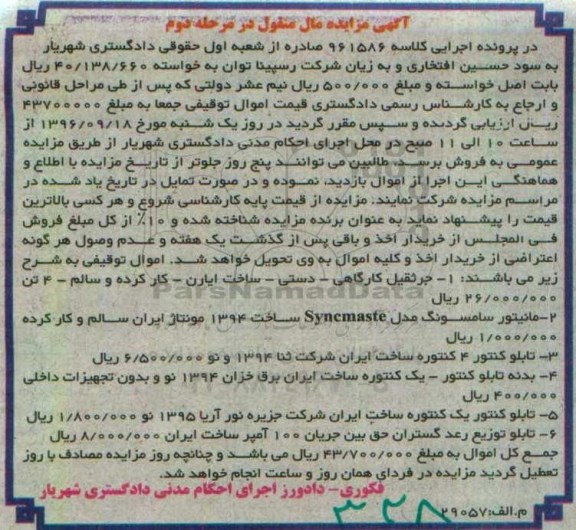 آگهی مزایده مال منقول در مرحله دوم
در پرونده اجرایی کلاسه ۹۶۱۵۸۶ صادره از شعبه اول حقوقی دادگستری شهریار
به سود حسین افتخاری و به زیان شرکت رسپینا توان به خواسته ۴۰/۱۳۸/۶۶۰ ریال
بابت اصل خواسته و مبلغ ۵۰۰/۰۰۰ ریال نیم عشر دولتی که پس از طی مراحل قانونی
و ارجاع به کارشناس رسمی دادگستری قیمت اموال توقیفی جمعا به مبلغ ۴۳۷۰۰۰۰۰
ریال ارزیابی گردیده و سپس مقرر گردید در روز یک شنبه مورخ ۱۳۹۶/۰۹/۱۸ از
ساعت ۱۰ الی ۱۱ صبح در محل اجرای احکام مدنی دادگستری شهریار از طریق مزایده
عمومی به فروش برسد. طالبین می توانند پنج روز جلوتر از تاریخ مزایده با اطلاع و
هماهنگی این اجرا از اموال بازدید، نموده و در صورت تمایل در تاریخ یاد شده در
مراسم مزایده شرکت نمایند. مزایده از قیمت پایه کارشناسی شروع و هر کسی بالاترین
قیمت را پیشنهاد نماید به عنوان برنده مزایده شناخته شده و ۱۰٪ از کل مبلغ فروش
فی المجلس از خریدار اخذ و باقی پس از گذشت یک هفته و عدم وصول هر گونه
اعتراضی از خریدار اخذ و کلیه اموال به وی تحویل خواهد شد. اموال توقیفی به شرح
زیر می باشند: ۱- جرثقیل کارگاهی - دستی - ساخت ایارن - کار کرده و سالم - ۴ تن
۲۶/۰۰۰/۰۰۰ ریال
۲-مانیتور سامسونگ مدل Syncmaste ساخت ۱۳۹۴ مونتاژ ایران سالم و کار کرده
۱/۰۰۰/۰۰۰ ریال
۳- تابلو کنتور ۴ کنتوره ساخت ایران شرکت ثنا ۱۳۹۴ و نو ۶/۵۰۰/۰۰۰ ریال
۴- بدنه تابلو کنتور - یک کنتوره ساخت ایران برق خزان ۱۳۹۴ نو و بدون تجهیزات داخلی
۴۰۰/۰۰۰ ریال
۵- تابلو کنتور یک کنتوره ساخت ایران شرکت جزیره نور آریا ۱۳۹۵ نو ۱/۸۰۰/۰۰۰ ریال
۶- تابلو توزیع رعد گستران حق بین جریان ۱۰۰ آمپر ساخت ایران ۸/۰۰۰/۰۰۰ ریال
جمع کل اموال به مبلغ ۴۳/۷۰۰/۰۰۰ ریال می باشد و چنانچه روز مزایده مصادف با روز
تعطیل گردید مزایده در فردای همان روز و ساعت انجام خواهد شد.
فکوری- دادورز اجرای احکام مدنی دادگستری شهریار
م.الف:۲۹۰۵۷
۳۲۸
ParsNamadData